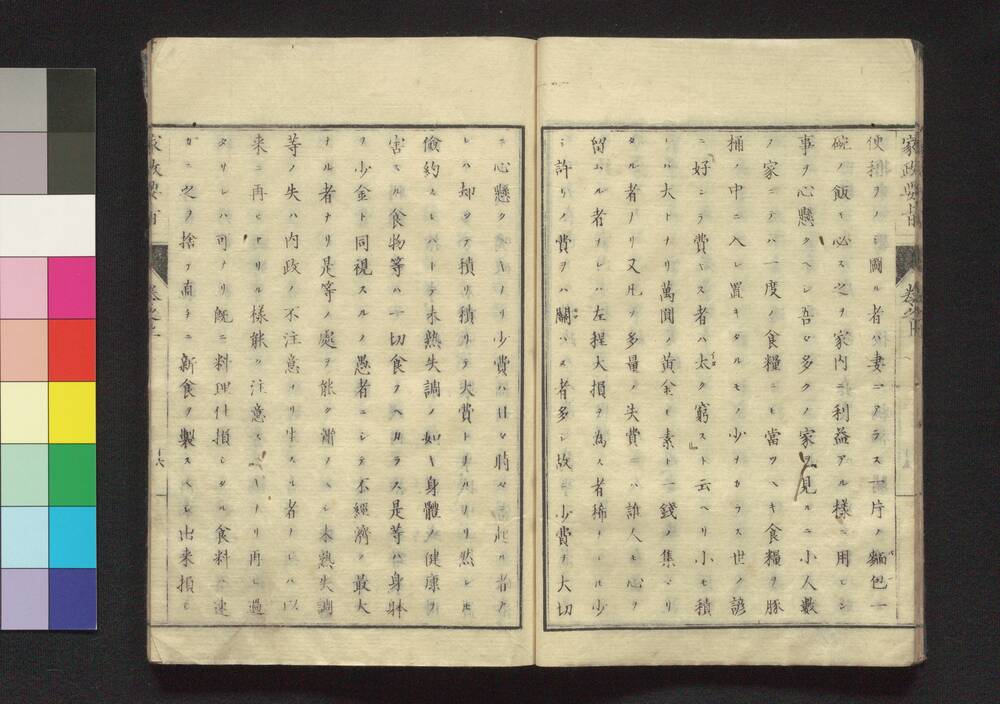 家政要旨 卷之下
使利ヲノミ圖ル者ハ妻ニアラス一片ノ麺包一
碗ノ飯モ必ス之ヲ家内ニ利益アル樣ニ用ヒン
事ヲ心懸クヘシ吾レ多クノ家ヲ見ルニ小人數
ノ家ニテハ一度ノ食糧ニモ當ツヘキ食糧ヲ豚
桶ノ中ニ入レ置キタルモノ少ナカラス世ノ諺
ニ『好ンテ費ヤス者ハ太ク窮ス』ト云ヘリ小モ積
レハ大トナリ萬圓ノ黄金モ素ト一錢ノ集レリ
タル者ナリ又凡ソ多量ノ失費ニハ誰人モ心ヲ
留ムル者ナレハ左程大損ヲ為ス者稀ナレトモ少
シ許リノ費ヲハ關ハヌ者多シ故ニ少費ヲ大切
ニ心懸クヘキナリ少費ハ日々時々ニ起ル者ナ
レハ却ツテ積リ積リテ大費トナルナリ然レトモ
儉約セシハトテ未熟失調ノ如キ身體ノ健康ヲ
害スル食物等ハ一切食フヘカラス是等ハ身躰
ヲ少金ト同視スルノ愚者ニシテ不經濟ノ最大
ナル者ナリ是等ノ處ヲ能ク辨フヘシ未熟失調
等ノ失ハ内政ノ不注意ヨリ生スル者ナレハ以
来ニ再ヒセサル樣能ク注意スヘキナリ再ヒ過
タサレハ可ナリ既ニ料理仕損シタル食料ハ速
カニ之ヲ捨テ直チニ新食ヲ製スヘシ出来損シ